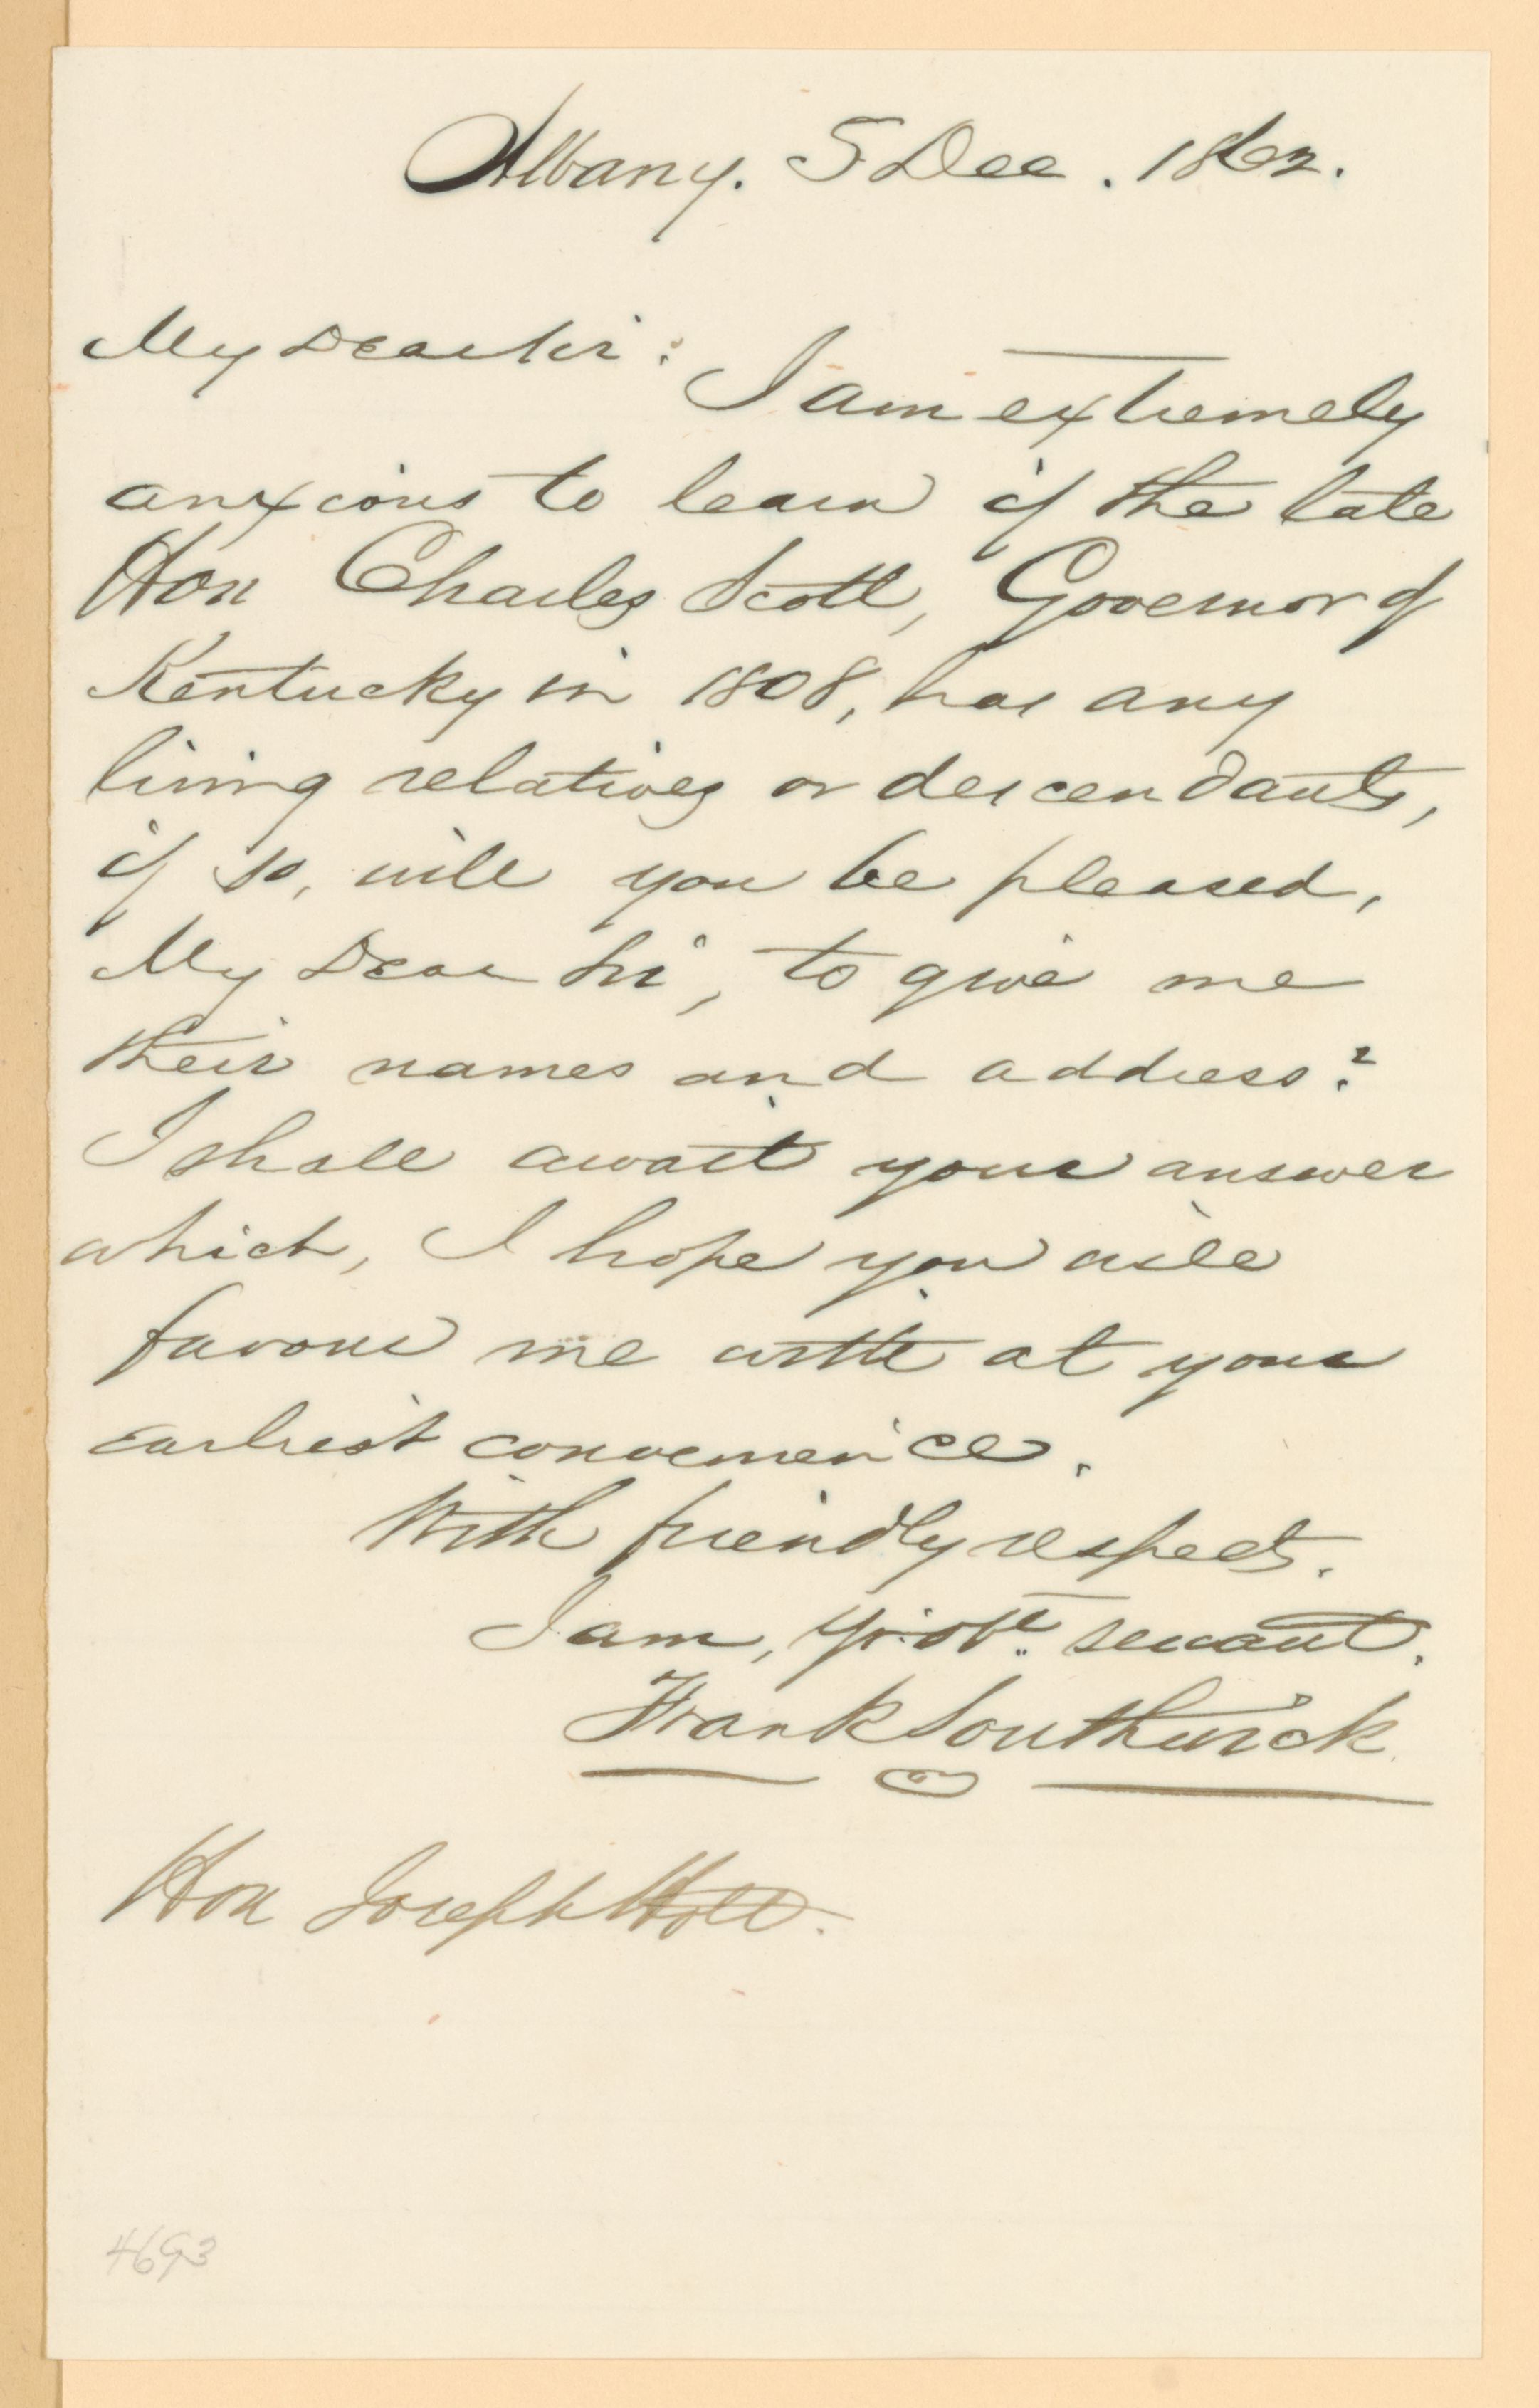 Albany. 5 Dec. 1862.
My Dear Sir:
I am extremely
anxious to learn if the late
Hon Charles Scott, Governor of
Kentucky in 1808, has any
living relatives or descendants,
if so, will you be pleased,
My Dear Sir, to give me
their names and address?
I shall await your answer
which, I hope you will
favour me with at your
earliest convenience.
With friendly respects.
I am, yr. obt. servant.
Frank Southwick
Hon Joseph Holt.
4693